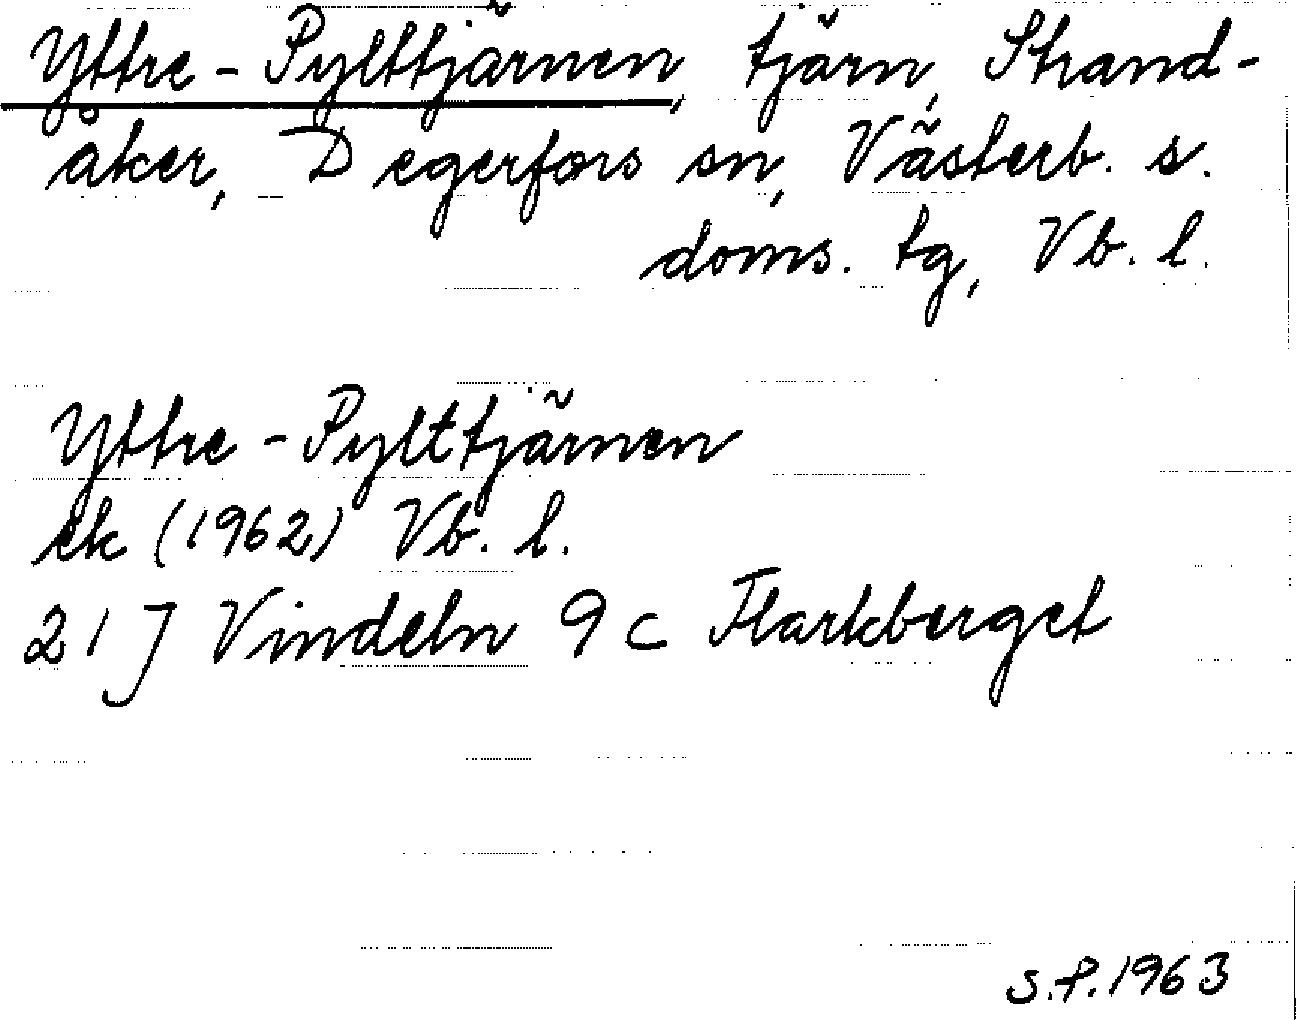 Yttre-Pylttjärnen, tjärn, Strand-
åker, Degerfors sn, Västerb. s.
doms. tg, Vb. l.
Yttre-Pylttjärnen
ek (1962) Vb. l.
21 J Vindeln 9 c Flarkberget
S.P. 1963